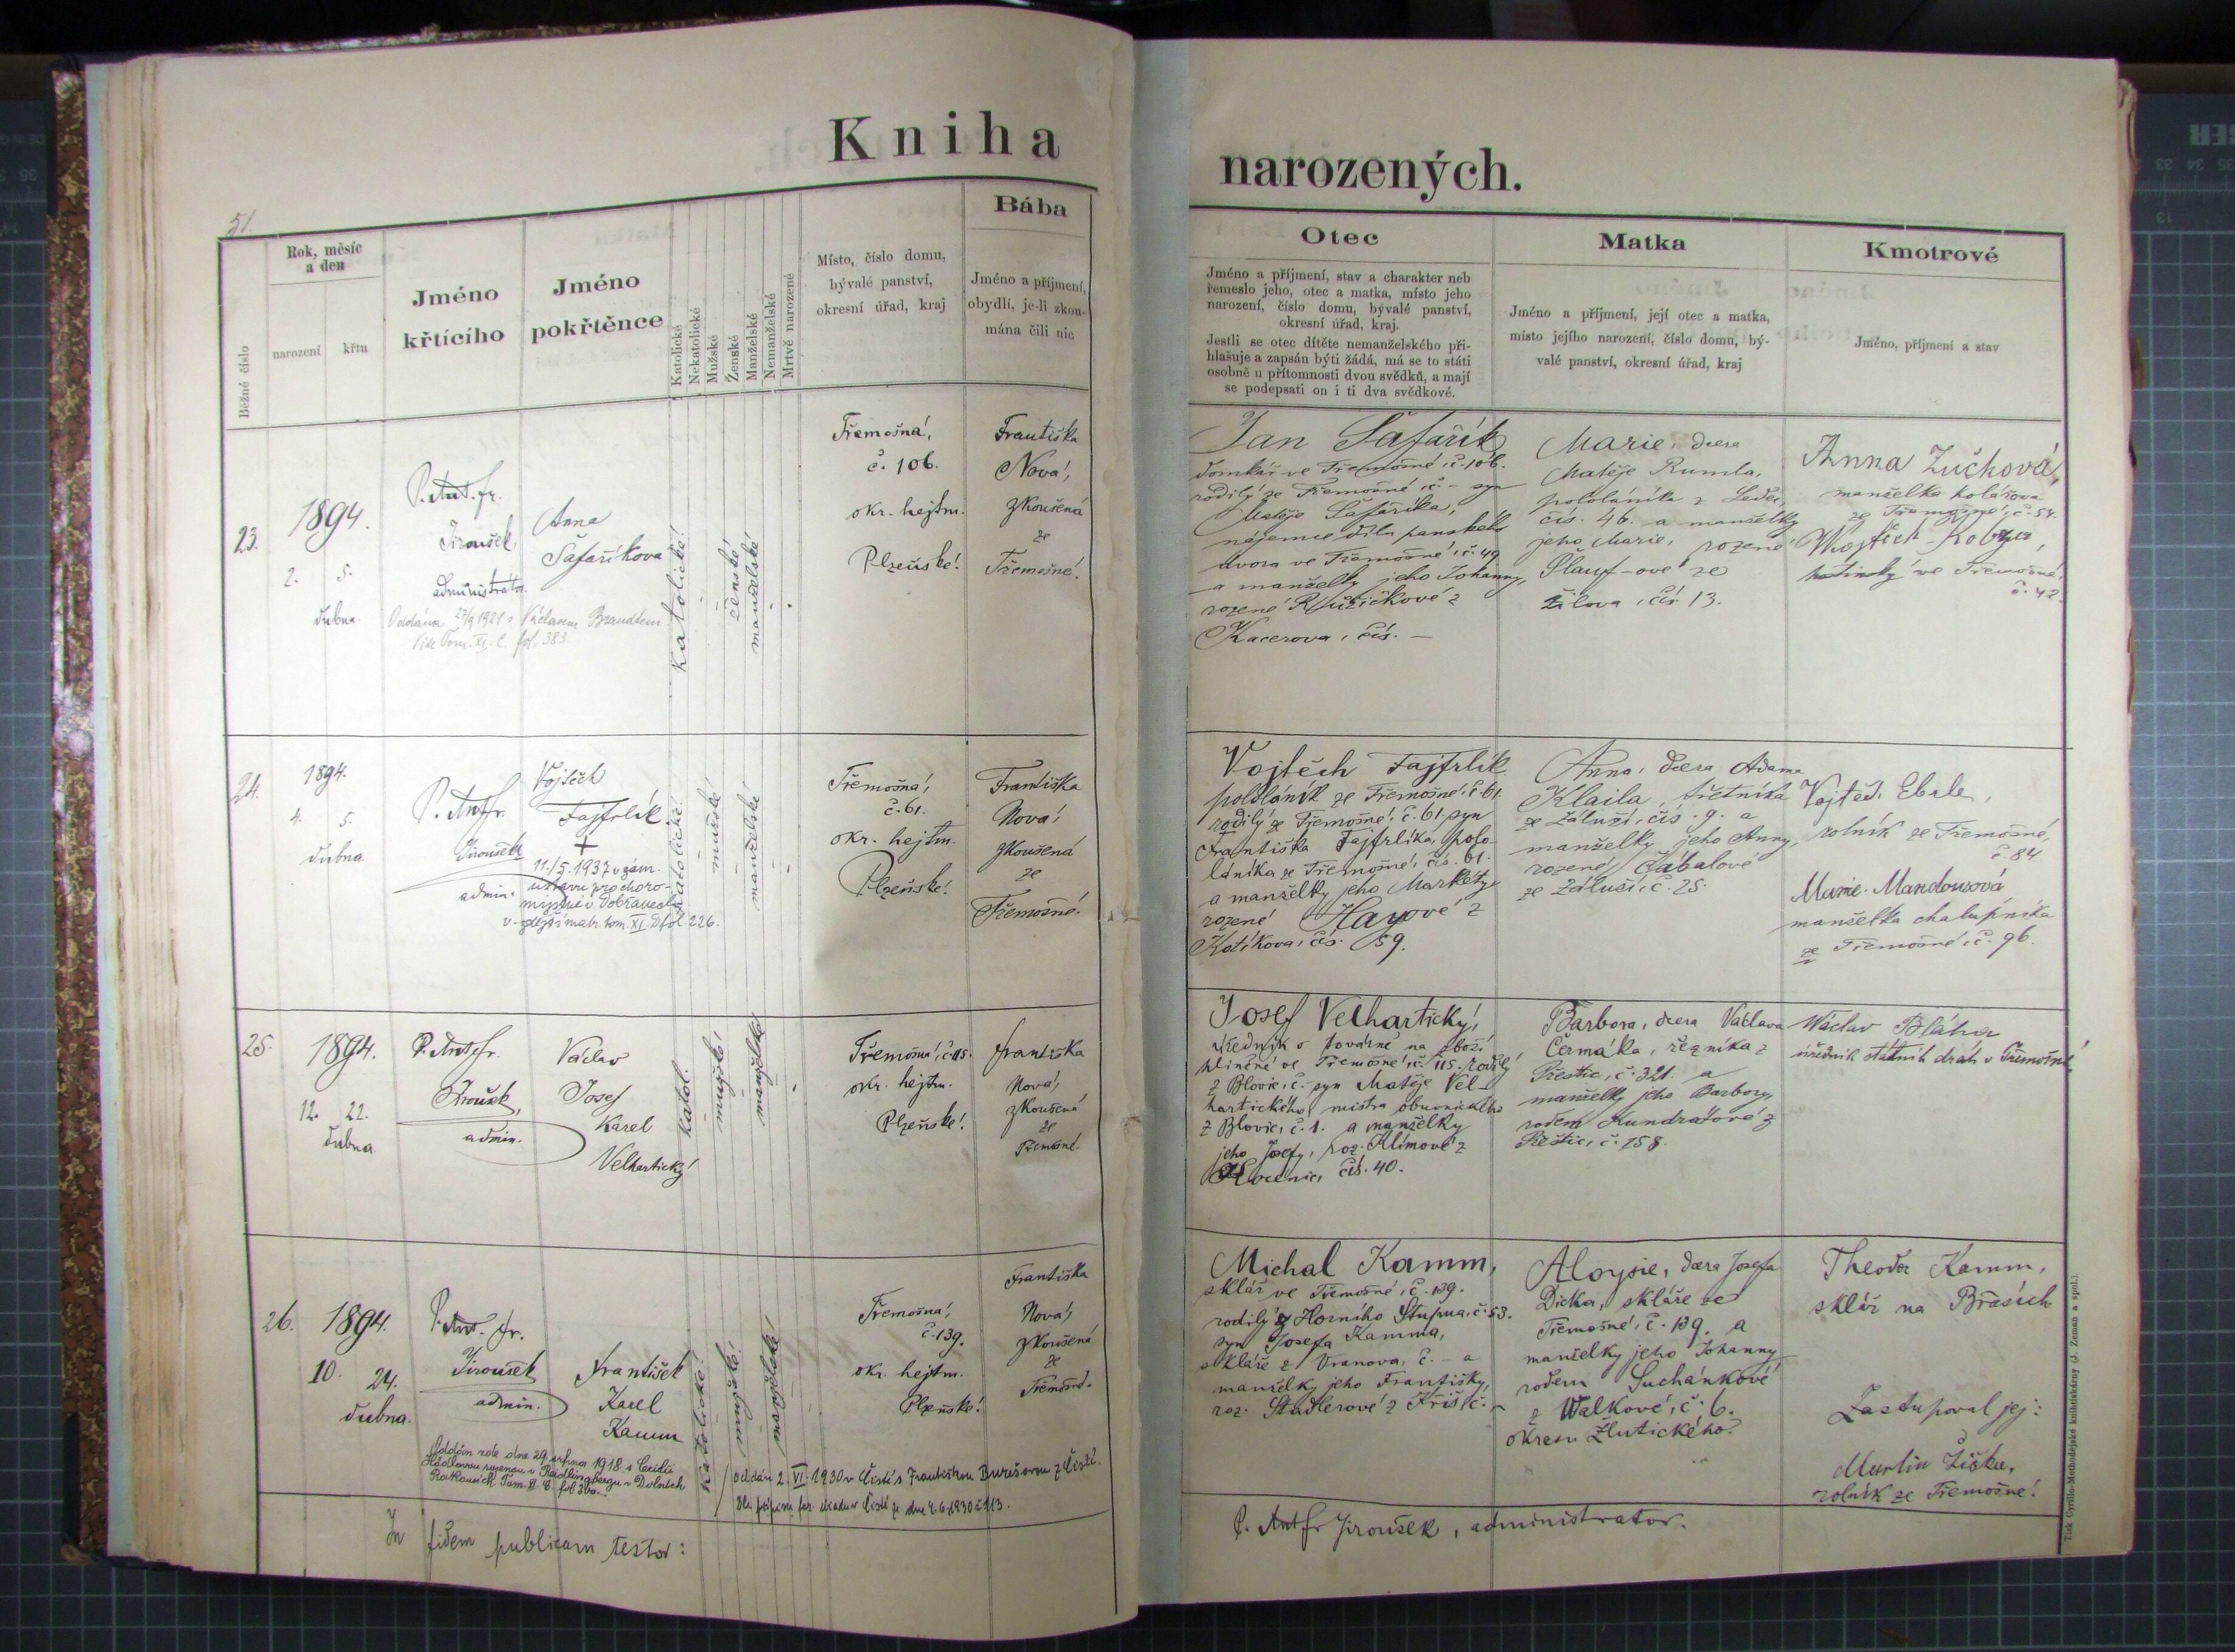 Kniha
narozených.
51.
Běžné číslo
Rok, měsíc
a den
narození
křtu
Jméno
křtícího
Jméno
pokřtěnce
Katolické
Nekatolické
Mužské
Ženské
Manželské
Nemanželské
Mrtvě narozené
Místo, číslo domu,
bývalé panství,
okresní úřad, kraj
Bába
Jméno a příjmení,
obydlí, je-li zkou-
mána čili nic
Otec
Jméno a příjmení, stav a charakter neb
řemeslo jeho, otec a matka, místo jeho
narození, číslo domu, bývalé panství,
okresní úřad, kraj.
Jestli se otec dítěte nemanželského při-
hlašuje a zapsán býti žádá, má se to státi
osobně u přítomnosti dvou svědků, a mají
se podepsati on i ti dva svědkové.
Matka
Jméno a příjmení, její otec a matka,
místo jejího narození, číslo domu, bý-
valé panství, okresní úřad, kraj
Kmotrové
Jméno, příjmení a stav
23.
1894.
2. 5.
dubna.
P. Ant. fr.
Jiroušek,
administrator.
Anna
Šafaříkova
Oddána 27/9 1921 s Václavem Brandtem
Vide Tom. XI. C. fol. 383.
katolické!
ženské
manželské
Třemošná,
č. 106.
okr. hejtm.
Plzeňské!
Františka
Nová,
zkoušená
ze
Třemošné.
Jan Šafařík
domkář ve Třemošné, č. 106.
rodilý ze Třemošné, č. – syn
Matěje Šafaříka,
nájemce dílu panského
dvora ve Třemošné, č. 49
a manželky jeho Johanny,
rozené Růžičkové z
Kacerova, čís. –
Marie, dcera
Matěje Rumla,
pololáníka z Ledec,
čís. 46. a manželky
jeho Marie, rozené
Plauf-ové ze
Žilova, čís. 13.
Anna Zučková,
manželka kolářova
ze Třemošné, č. 54.
Wojtěch Kobza,
ve Třemošné,
č. 42.
24.
1894.
4. 5.
dubna.
P. Ant fr.
Jiroušek
admin.
Vojtěch
Fajfrlík.
+
11./5. 1937 v zem.
ústavu pro choro-
myslné v Dobřanech
v zdejší matr. tom. XI. D fol. 226.
katolické!
mužské
manželské
Třemošná,
č. 61.
okr. hejtm.
Plzeňské!
Františka
Nová,
zkoušená
ze
Třemošné.
Vojtěch Fajfrlík
pololáník ze Třemošné, č. 61.
rodilý ze Třemošné, č. 61 syn
Františka Fajfrlíka, polo-
láníka ze Třemošné, čís. 61.
a manželky jeho Markéty
rozené Hayové z
Kotíkova, čís. 59.
Anna, dcera Adama
Klaila, třetníka
ze Záluží, čís. 9. a
manželky jeho Anny,
rozené Cábalové
ze Záluží, č. 25.
Vojtěch Eberle,
rolník ze Třemošné,
č. 84
Marie Mandousová
manželka chalupníka
ze Třemošné, č. 96.
25.
1894.
12. 22.
dubna.
P. Ant fr.
Jiroušek,
admin.
Václav
Josef
Karel
Velhartický
katol.
mužské
manželské
Třemošná, č. 115.
okr. hejtm.
Plzeňské!
Františka
Nová,
zkoušená
ze
Třemošné.
Josef Velhartický,
úředník v továrně na zboží
hliněné ve Třemošné, č. 115. rodilý
z Blovic, č. – syn Matěje Vel-
hartického, mistra obuvnického
z Blovic, č. 1. a manželky
jeho Josefy, roz. Klímové z
čís. 40.
Barbora, dcera Václava
Čermáka, řezníka z
Přeštic, č. 321. a
manželky jeho Barbory,
rodem Kundrátové z
Přeštic, č. 158.
Wáclav Bláha
úředník státních drah v Třemošné,
26.
1894.
10. 24.
dubna.
P. Ant. fr.
Jiroušek
admin.
František
Karel
Kamm
Oddán zde dne 29. srpna 1918 s Cecilií
katolické!
mužské
manželské
Oddán 2. VI. 1930 v Čisté s Františkou Burešovou z Čisté.
Dle přípisu far. úřadu v Čisté ze dne 4. 6. 1930 č. 413.
Třemošná,
č. 139.
okr. hejtm.
Plzeňské!
Františka
Nová,
zkoušená
ze
Třemošné.
Michal Kamm,
sklář ve Třemošné, č. 139.
rodilý z Horního Stupna, č. 53.
syn Josefa Kamma,
skláře z Vranova, č. – a
manželky jeho Františky,
roz. Stadlerové z Kříš, č. –
Aloysie, dcera Josefa
Dicka, skláře ze
Třemošné, č. 139. a
manželky jeho Johanny
rodem Suchánkové
z Walkové, č. 6.
okresu Žlutického.
Theodor Kamm,
sklář na Břasích
Zastupoval jej:
Martin Žiška,
rolník ze Třemošné.
In fidem publicam testor:
P. Ant fr Jiroušek, administrator.
Tisk Cyrillo-Methodějské knihtiskárny (J. Zeman a spol.).